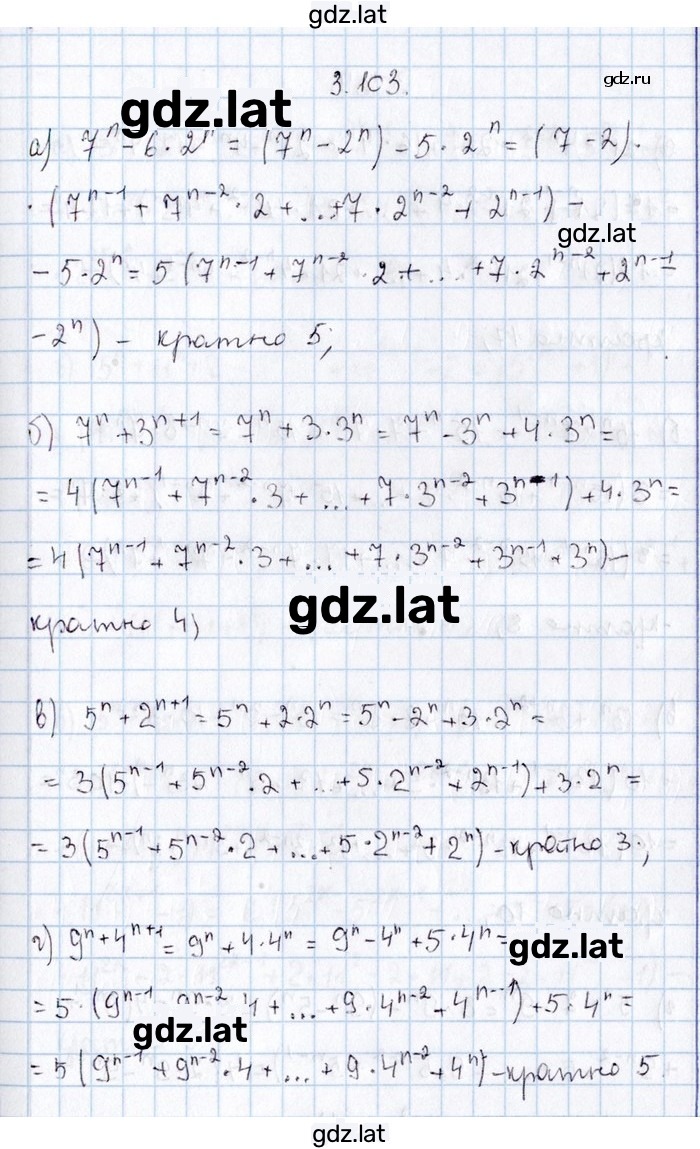 gdz.lat
3.103.
gdz.ru
gdz.lat
а) 7ⁿ - 6·2ⁿ = (7ⁿ - 2ⁿ) - 5·2ⁿ = (7-2)·
·(7ⁿ⁻¹ + 7ⁿ⁻²·2 + ...+7·2ⁿ⁻² + 2ⁿ⁻¹) -
gdz.lat
- 5·2ⁿ = 5(7ⁿ⁻¹ + 7ⁿ⁻²·2 + ... + 7·2ⁿ⁻² + 2ⁿ⁻¹ -
- 2ⁿ) - кратно 5;
б) 7ⁿ + 3ⁿ⁺¹ = 7ⁿ + 3·3ⁿ = 7ⁿ - 3ⁿ + 4·3ⁿ =
= 4(7ⁿ⁻¹ + 7ⁿ⁻²·3 + ... + 7·3ⁿ⁻² + 3ⁿ⁻¹) + 4·3ⁿ =
= 4(7ⁿ⁻¹ + 7ⁿ⁻²·3 + ... + 7·3ⁿ⁻² + 3ⁿ⁻¹ + 3ⁿ) -
gdz.lat
кратно 4;
в) 5ⁿ + 2ⁿ⁺¹ = 5ⁿ + 2·2ⁿ = 5ⁿ - 2ⁿ + 3·2ⁿ =
= 3(5ⁿ⁻¹ + 5ⁿ⁻²·2 + ... + 5·2ⁿ⁻² + 2ⁿ⁻¹) + 3·2ⁿ =
= 3(5ⁿ⁻¹ + 5ⁿ⁻²·2 + ... + 5·2ⁿ⁻² + 2ⁿ) - кратно 3;
г) 9ⁿ + 4ⁿ⁺¹ = 9ⁿ + 4·4ⁿ = 9ⁿ - 4ⁿ + 5·4ⁿ =
gdz.lat
= 5·(9ⁿ⁻¹ 9ⁿ⁻² 4 + ... + 9·4ⁿ⁻² + 4ⁿ⁻¹) + 5·4ⁿ =
gdz.lat
= 5(9ⁿ⁻¹ + 9ⁿ⁻²·4 + ... + 9·4ⁿ⁻² + 4ⁿ) - кратно 5.
gdz.lat